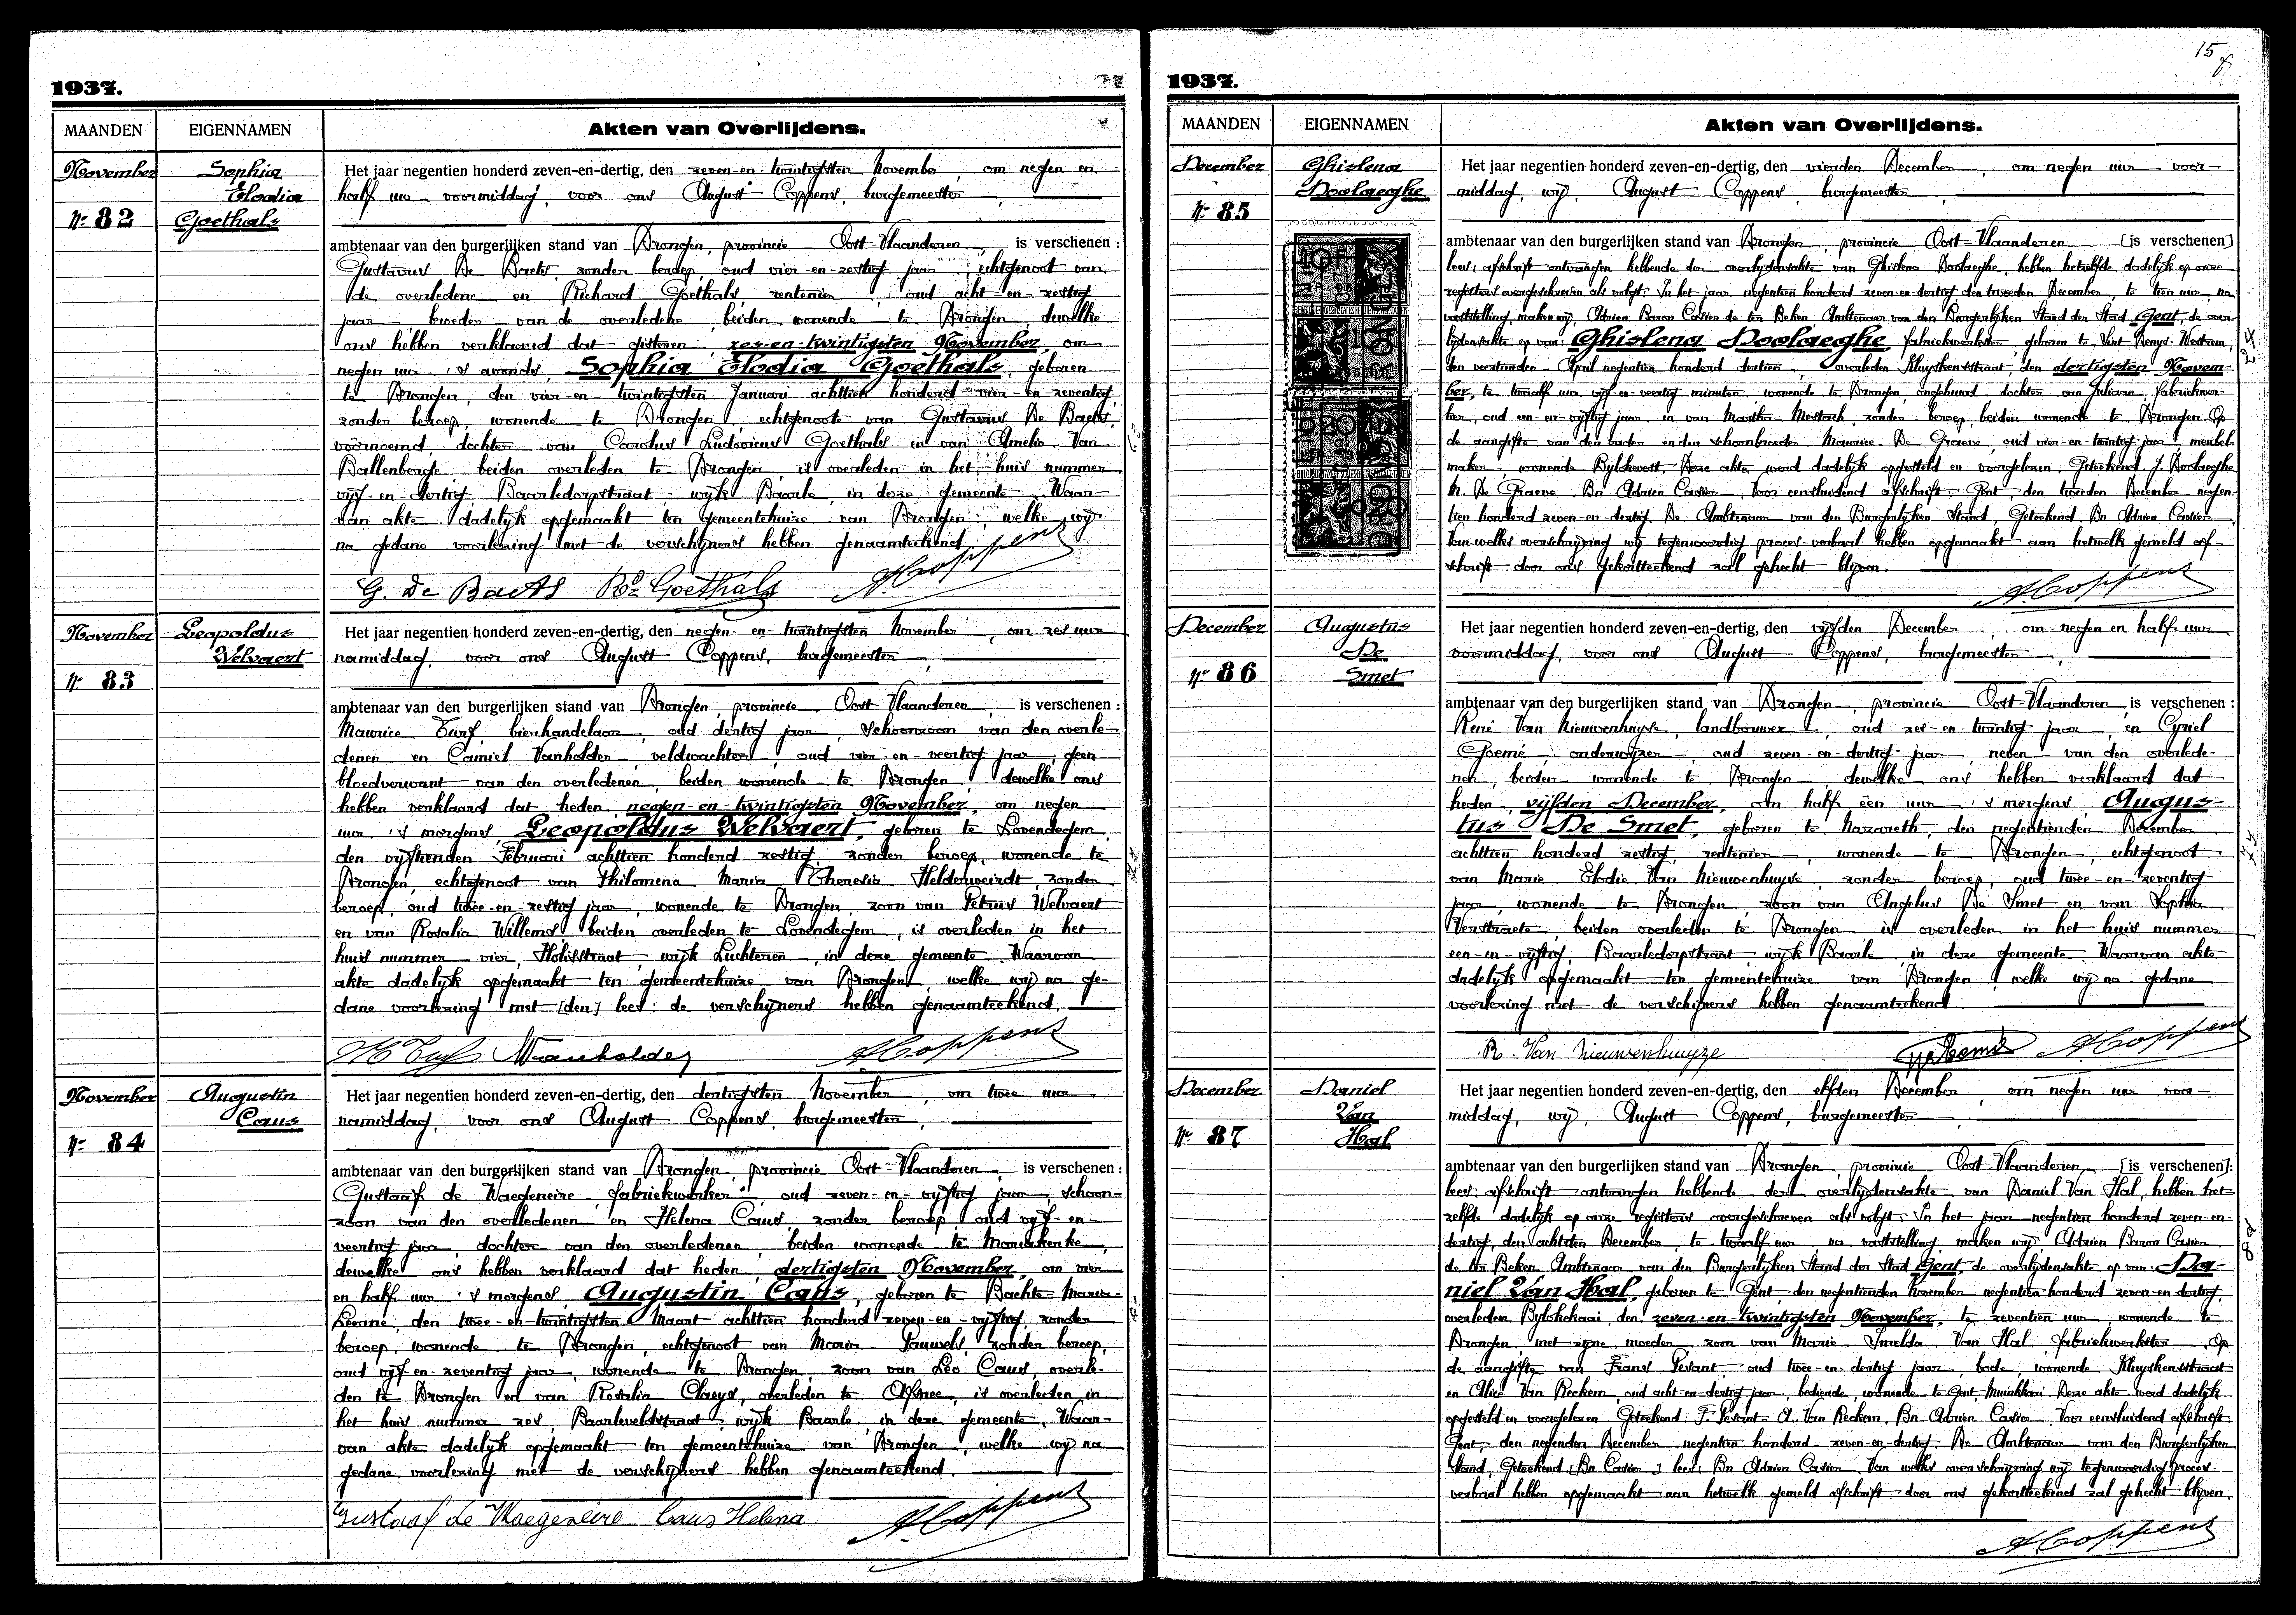 1937.
MAANDEN EIGENNAMEN Akten van Overlijdens.
November
Nr 82
Sophia
Elodia
Goethals
Het jaar negentien honderd zeven-en-dertig, den zeven-en-twintigsten November, om negen en
half uur voormiddag, voor ons August Coppens, burgemeester,
ambtenaar van den burgerlijken stand van Drongen, provincie Oost-Vlaanderen, is verschenen :
Gustavus De Baets, zonder beroep, oud vier-en-zestig jaar, echtgenoot van
de overledene en Richard Goethals, rentenier, oud acht-en-zestig
jaar, broeder van de overledene, beiden wonende te Drongen, dewelke
ons hebben verklaard dat gisteren, zes-en-twintigsten November, om
negen uur 's avonds, Sophia Elodia Goethals, geboren
te Drongen, den vier-en-twintigsten Januari achttien honderd vier-en-zeventig,
zonder beroep, wonende te Drongen, echtgenoote van Gustavus De Baets,
voornoemd, dochter van Carolus Ludovicus Goethals en van Amelia Van
Ballenberge, beiden overleden te Drongen, is overleden in het huis nummer
vijf-en-dertig, Baarledorpstraat wijk Baarle, in deze gemeente. Waar-
van akte dadelijk opgemaakt ten gemeentehuize van Drongen, welke wij
na gedane voorlezing met de verschijners hebben genaamteekend.
G. De Baets Rd Goethals A. Coppens
November
Nr 83
Leopoldus
Welvaert
Het jaar negentien honderd zeven-en-dertig, den negen-en-twintigsten November, om zes uur
namiddag, voor ons August Coppens, burgemeester,
ambtenaar van den burgerlijken stand van Drongen, provincie Oost-Vlaanderen, is verschenen :
Maurice Turf, bierhandelaar, oud dertig jaar, schoonzoon van den overle-
denen en Camiel Vanholder, veldwachter, oud vier-en-veertig jaar, geen
bloedverwant van den overledenen, beiden wonende te Drongen, dewelke ons
hebben verklaard dat heden negen-en-twintigsten November, om negen
uur 's morgens, Leopoldus Welvaert, geboren te Lovendegem,
den vijftienden Februari achttien honderd zestig, zonder beroep, wonende te
Drongen, echtgenoot van Philomena Maria Theresia Helderweirdt, zonder
beroep, oud twee-en-zestig jaar, wonende te Drongen, zoon van Petrus Welvaert
en van Rosalia Willems beiden overleden te Lovendegem, is overleden in het
huis nummer vier, wijk Luchteren, in deze gemeente. Waarvan
akte dadelijk opgemaakt ten gemeentehuize van Drongen, welke wij na ge-
dane voorlezing met [den] lees: de verschijners hebben genaamteekend.
M Turf Vanholder A. Coppens
November
Nr 84
Augustin
Caus
Het jaar negentien honderd zeven-en-dertig, den dertigsten November, om twee uur
namiddag, voor ons August Coppens, burgemeester,
ambtenaar van den burgerlijken stand van Drongen, provincie Oost-Vlaanderen, is verschenen :
Gustaaf de Waegeneire, fabriekwerker, oud zeven-en-vijftig jaar, schoon-
zoon van den overledenen en Helena Caus, zonder beroep, oud vijf-en-
veertig jaar, dochter van den overledenen, beiden wonende te Mariakerke,
dewelke ons hebben verklaard dat heden, dertigsten November, om vier
en half uur 's morgens, Augustin Caus, geboren te Bachte-Maria-
Leerne, den twee-en-twintigsten Maart achttien honderd zeven-en-vijftig, zonder
beroep, wonende te Drongen, echtgenoot van Maria Pauwels, zonder beroep,
oud vijf-en-zeventig jaar, wonende te Drongen, zoon van Leo Caus, overle-
den te Drongen en van Rosalia Claeys, overleden te Afsnee, is overleden in
het huis nummer zes, Baarleveldstraat, wijk Baarle, in deze gemeente. Waar-
van akte dadelijk opgemaakt ten gemeentehuize van Drongen, welke wij na
gedane voorlezing met de verschijners hebben genaamteekend.
Gustaaf de Waegeneire Caus Helena A. Coppens
15
1937.
MAANDEN EIGENNAMEN Akten van Overlijdens.
December
Nr 85
Ghislena
Doolaeghe
Het jaar negentien honderd zeven-en-dertig, den vierden December, om negen uur voor-
middag, wij, August Coppens, burgemeester,
ambtenaar van den burgerlijken stand van Drongen, provincie Oost-Vlaanderen [is verschenen]
lees: afschrift ontvangen hebbende der overlijdensakte van Ghislena Doolaeghe, hebben hetzelfde dadelijk op onze
registers overgeschreven als volgt: In het jaar negentien honderd zeven-en-dertig den tweeden December, te tien uur, na
vaststelling, maken wij, Adrien Baron Casier de ter Beken Ambtenaar van den Burgerlijken Stand der Stad Gent, de over-
lijdensakte op van: Ghislena Doolaeghe, fabriekwerkster, geboren te Sint Denys-Westrem,
den veertienden April negentien honderd dertien, overleden Kluyskensstraat, den dertigsten Novem-
ber, te twaalf uur vijf-en-veertig minuten, wonende te Drongen, ongehuwd, dochter van Juliaan, fabriekwer-
ker, oud een-en-vijftig jaar en van Martha Mestach, zonder beroep, beiden wonende te Drongen. Op
de aangifte van den vader en den schoonbroeder Maurice De Graeve, oud vier-en-twintig jaar, meubel-
maker, wonende Bylokevest. Deze akte werd dadelijk opgesteld en voorgelezen. Geteekend J. Doolaeghe
M. De Graeve Bn Adrien Casier. Voor eensluidend afschrift. Gent, den tweeden December negen-
tien honderd zeven-en-dertig. De Ambtenaar van den Burgerlijken Stand. Geteekend Bn Adrien Casier.
Van welke overschrijving wij tegenwoordig proces-verbaal hebben opgemaakt aan hetwelk gemeld af-
schrift door ons gekortteekend zal gehecht blijven.
A. Coppens
December
Nr 86
Augustus
De
Smet
Het jaar negentien honderd zeven-en-dertig, den vijfden December, om negen en half uur
voormiddag, voor ons August Coppens, burgemeester,
ambtenaar van den burgerlijken stand van Drongen, provincie Oost-Vlaanderen, is verschenen :
René Van Nieuwenhuyse, landbouwer, oud zes-en-twintig jaar, en Cyriel
Goemé, onderwijzer, oud zeven-en-dertig jaar, neven van den overlede-
nen, beiden wonende te Drongen, dewelke ons hebben verklaard dat
heden, vijfden December, om half één uur 's morgens, Augus-
tus De Smet, geboren te Nazareth, den negentienden December
achttien honderd zestig, rentenier, wonende te Drongen, echtgenoot
van Marie Elodie Van Nieuwenhuyse, zonder beroep, oud twee-en-zeventig
jaar, wonende te Drongen, zoon van Angelus De Smet en van Sophia
Verstraete, beiden overleden te Drongen is overleden in het huis nummer
een-en-vijftig, Baarledorpstraat, wijk Baarle, in deze gemeente. Waarvan akte
dadelijk opgemaakt ten gemeentehuize van Drongen, welke wij na gedane
voorlezing met de verschijners hebben genaamteekend
R. Van Nieuwenhuyze Goemé A. Coppens
December
Nr 87
Daniel
Van
Hal
Het jaar negentien honderd zeven-en-dertig, den elfden December, om negen uur voor-
middag, wij, August Coppens, burgemeester,
ambtenaar van den burgerlijken stand van Drongen, provincie Oost-Vlaanderen [is verschenen]:
lees: afschrift ontvangen hebbende der overlijdensakte van Daniel Van Hal, hebben het-
zelfde dadelijk op onze registers overgeschreven als volgt: In het jaar negentien honderd zeven-en-
dertig, den achtsten December, te twaalf uur na vaststelling, maken wij Adrien Baron Casier
de ter Beken Ambtenaar van den Burgerlijken Stand der Stad Gent, de overlijdensakte op van: Da-
niel Van Hal, geboren te Gent den negentienden November negentien honderd zeven-en-dertig,
overleden Bylokekaai, den zeven-en-twintigsten November, te zeventien uur, wonende te
Drongen, met zijne moeder, zoon van Marie Imelda Van Hal, fabriekwerkster. Op
de aangifte van Frans Pesant oud twee-en-dertig jaar, bode, wonende Kluyskensstraat
en Alice Van Reckem, oud acht-en-dertig jaar, bediende, wonende te Gent, Muinkkaai. Deze akte werd dadelijk
opgesteld en voorgelezen. Geteekend: F. Pesant A. Van Reckem. Bn Adrien Casier. Voor eensluidend afschrift:
Gent, den negenden December negentien honderd zeven-en-dertig. De Ambtenaar van den Burgerlijken
Stand, Geteekend [Bn Casier.] lees: Bn Adrien Casier. Van welke overschrijving wij tegenwoordig proces-
verbaal hebben opgemaakt aan hetwelk gemeld afschrift door ons gekortteekend zal gehecht blijven.
A. Coppens